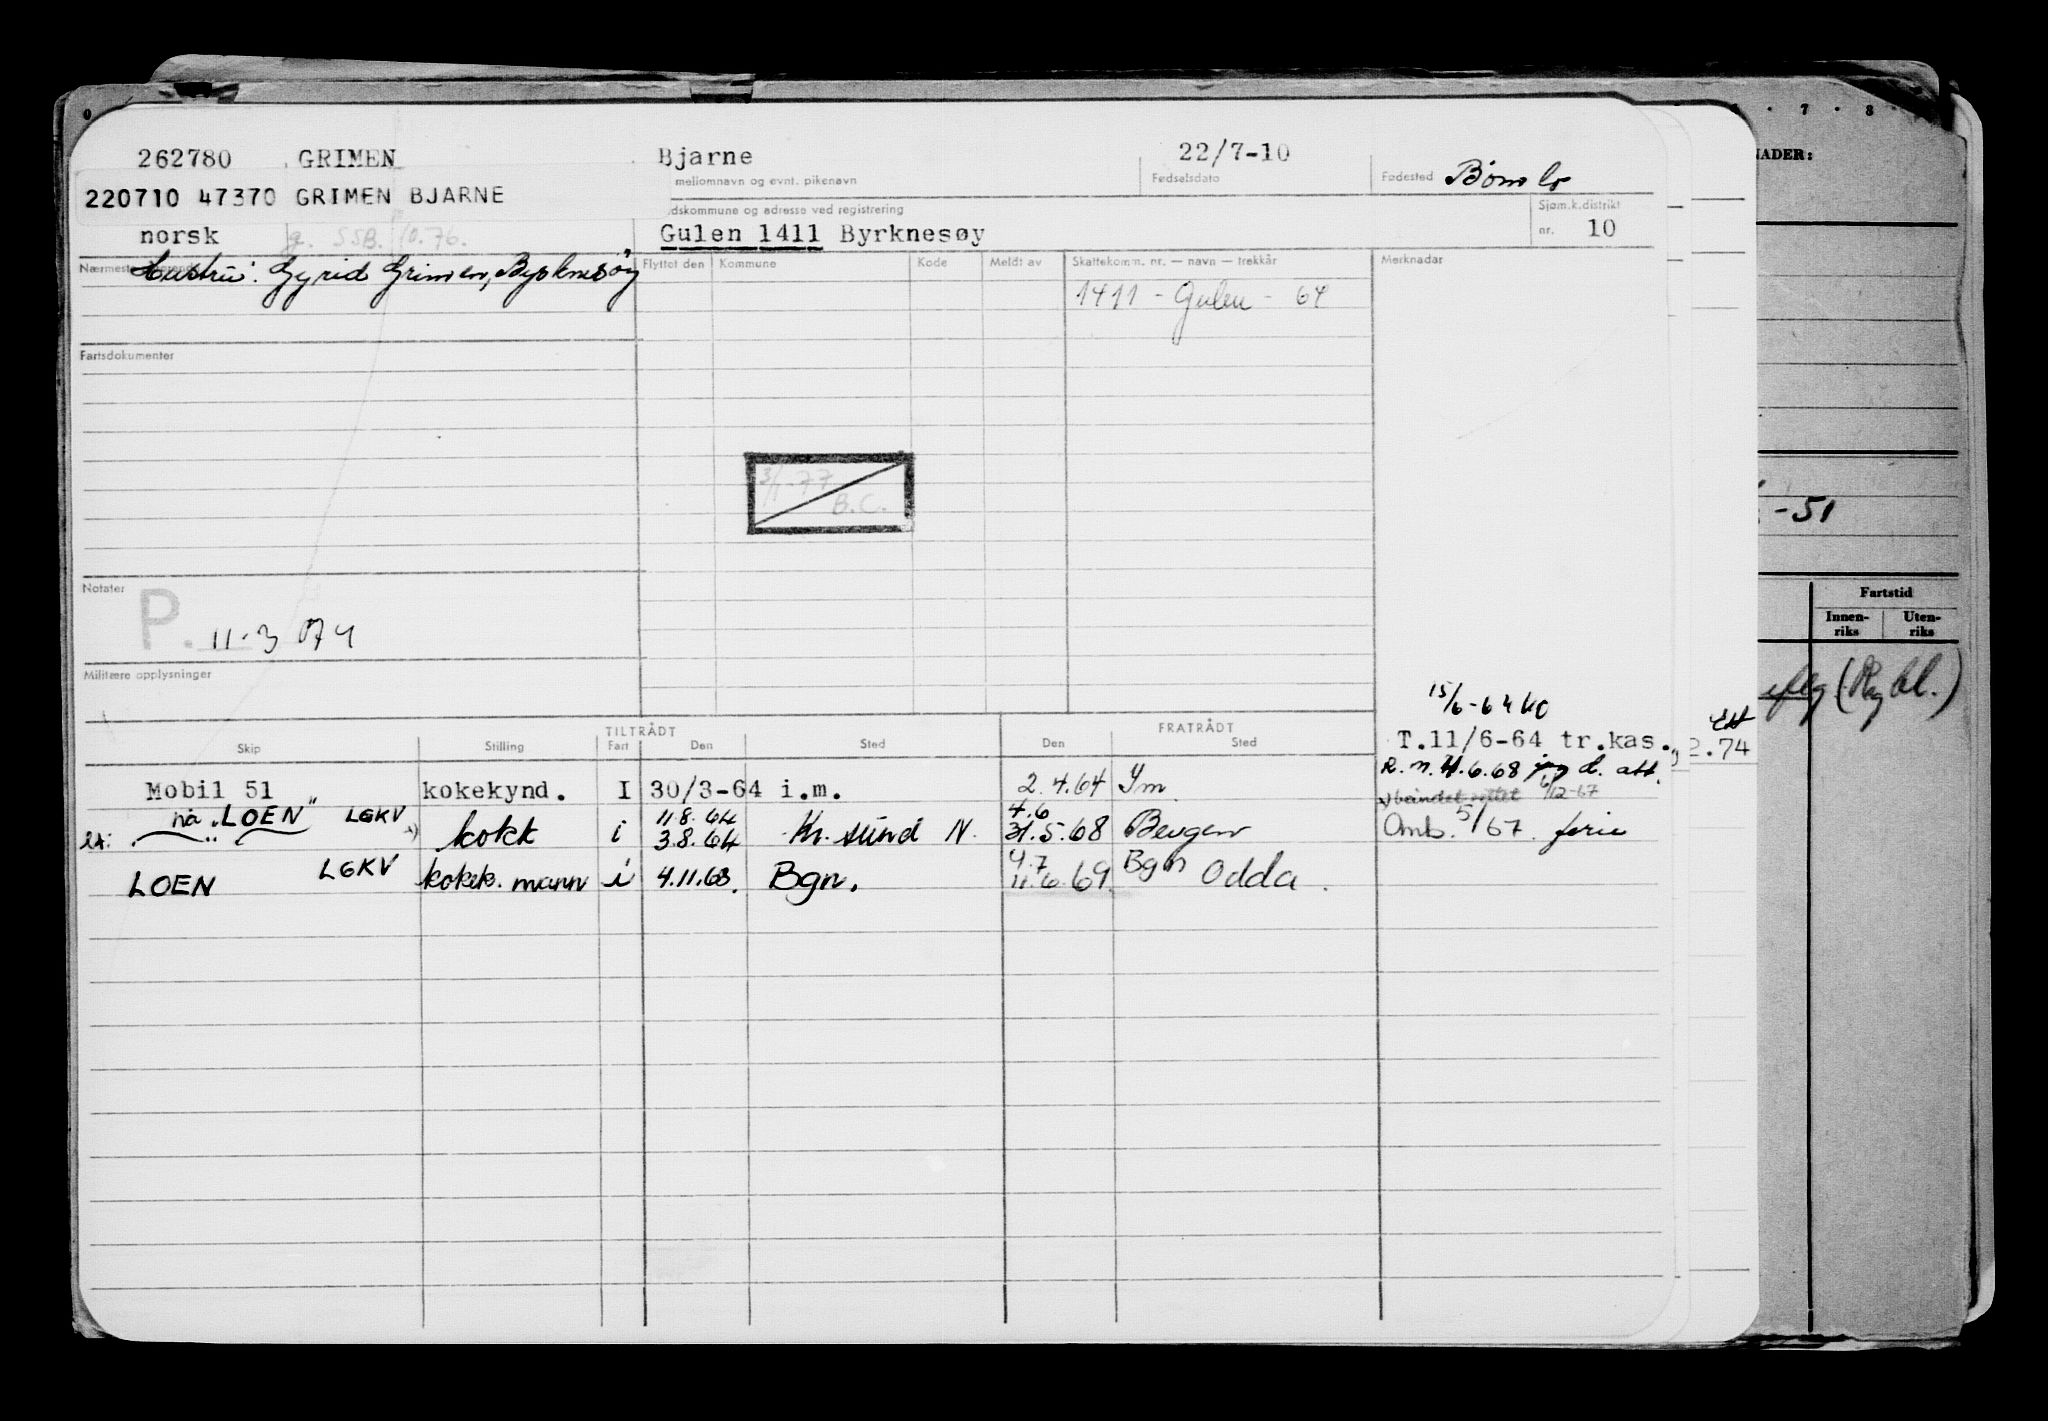 262780 GRIMEN Bjarne 22/7-10
mellomnavn og evnt. pikenavn Fødselsdato Fødested Bømlo
220710 47370 GRIMEN BJARNE
dskommune og adresse ved registrering Sjøm.k.distrikt
norsk g. SSB. 10.76. Gulen 1411 Byrknesøy nr. 10
Hustru: Gyrid Grimen, Byrknesøy
Flyttet den Kommune Kode Meldt av Skattekomm. nr. — navn — trekkår Merknader
1411 - Gulen - 64
Fartsdokumenter
3/1-77
B.C.
Notater
P. 11-3 074
Militære opplysninger
15/6-64
TILTRÅDT FRATRÅDT
Skip Stilling Fart Den Sted Den Sted
T.11/6-64 tr.kas.
Mobil 51 kokekynd. I 30/3-64 i.m. 2.4.64 Im.
R.n. 4.6.68 d. att.
6/12-67
nå "LOEN" LGKV 11.8.64 4.6
kokk i 3.8.64 Kr.sund N. 31.5.68 Bergen
Omb. 5/67. ferie
LOEN LGKV kokek. mann i 4.11.68. Bgn. 4.7 11.6.69. Bgn Odda.
2.74
NADER:
7 · 8
-51
Fartstid
Innen-riks Uten-riks